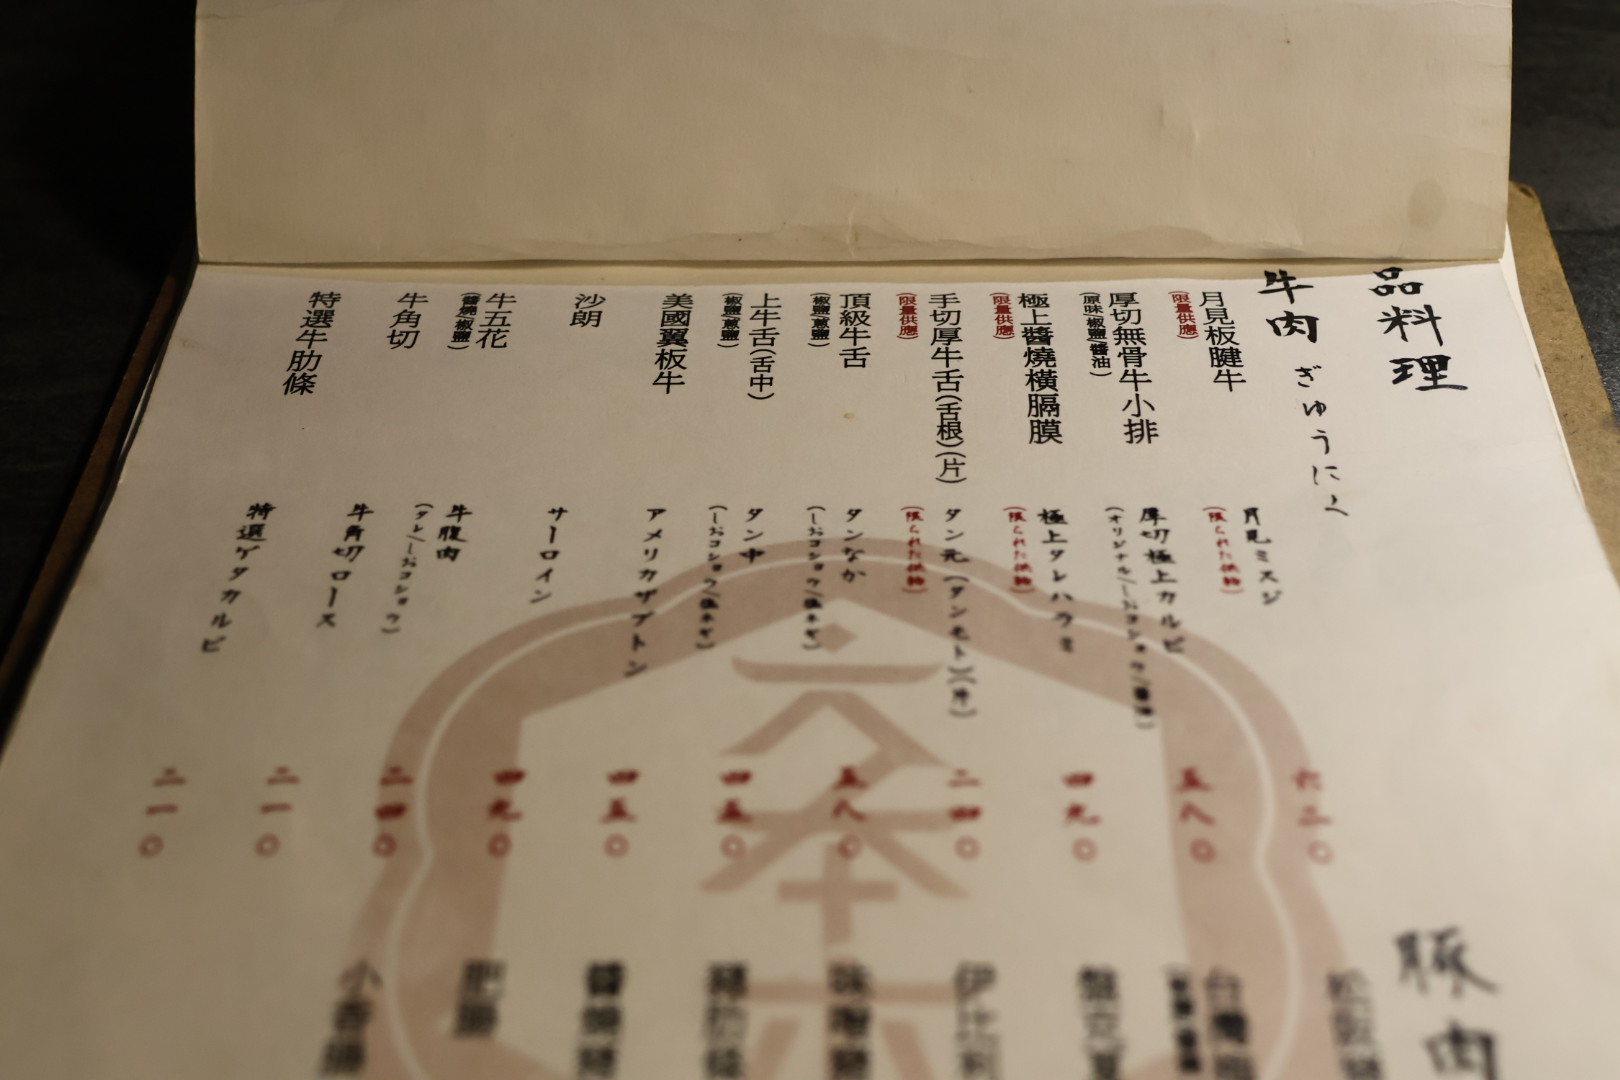 品料理
牛肉 ぎゅうにく
月見板腱牛
(限量供應)
月見ミスジ
(限られた供給)
六二〇
厚切無骨牛小排
(原味/椒鹽/醬油)
厚切極上カルビ
(オリジナル/しおコショウ/醤油)
五八〇
極上醬燒橫膈膜
(限量供應)
極上タレハラミ
(限られた供給)
四九〇
手切厚牛舌(舌根)(片)
(限量供應)
タン元(タンモト)(片)
(限られた供給)
二四〇
頂級牛舌
(椒鹽/蔥鹽)
タンなか
五八〇
上牛舌(舌中)
(椒鹽/蔥鹽)
タン中
四五〇
美國翼板牛
アメリカザブトン
四五〇
沙朗
サーロイン
四九〇
牛五花
(醬燒/椒鹽)
牛腹肉
(タレ/しおコショウ)
二四〇
牛角切
牛角切ロース
二一〇
特選牛肋條
特選ゲタカルビ
二一〇
豚肉
伊比利
肥腸
小香腸